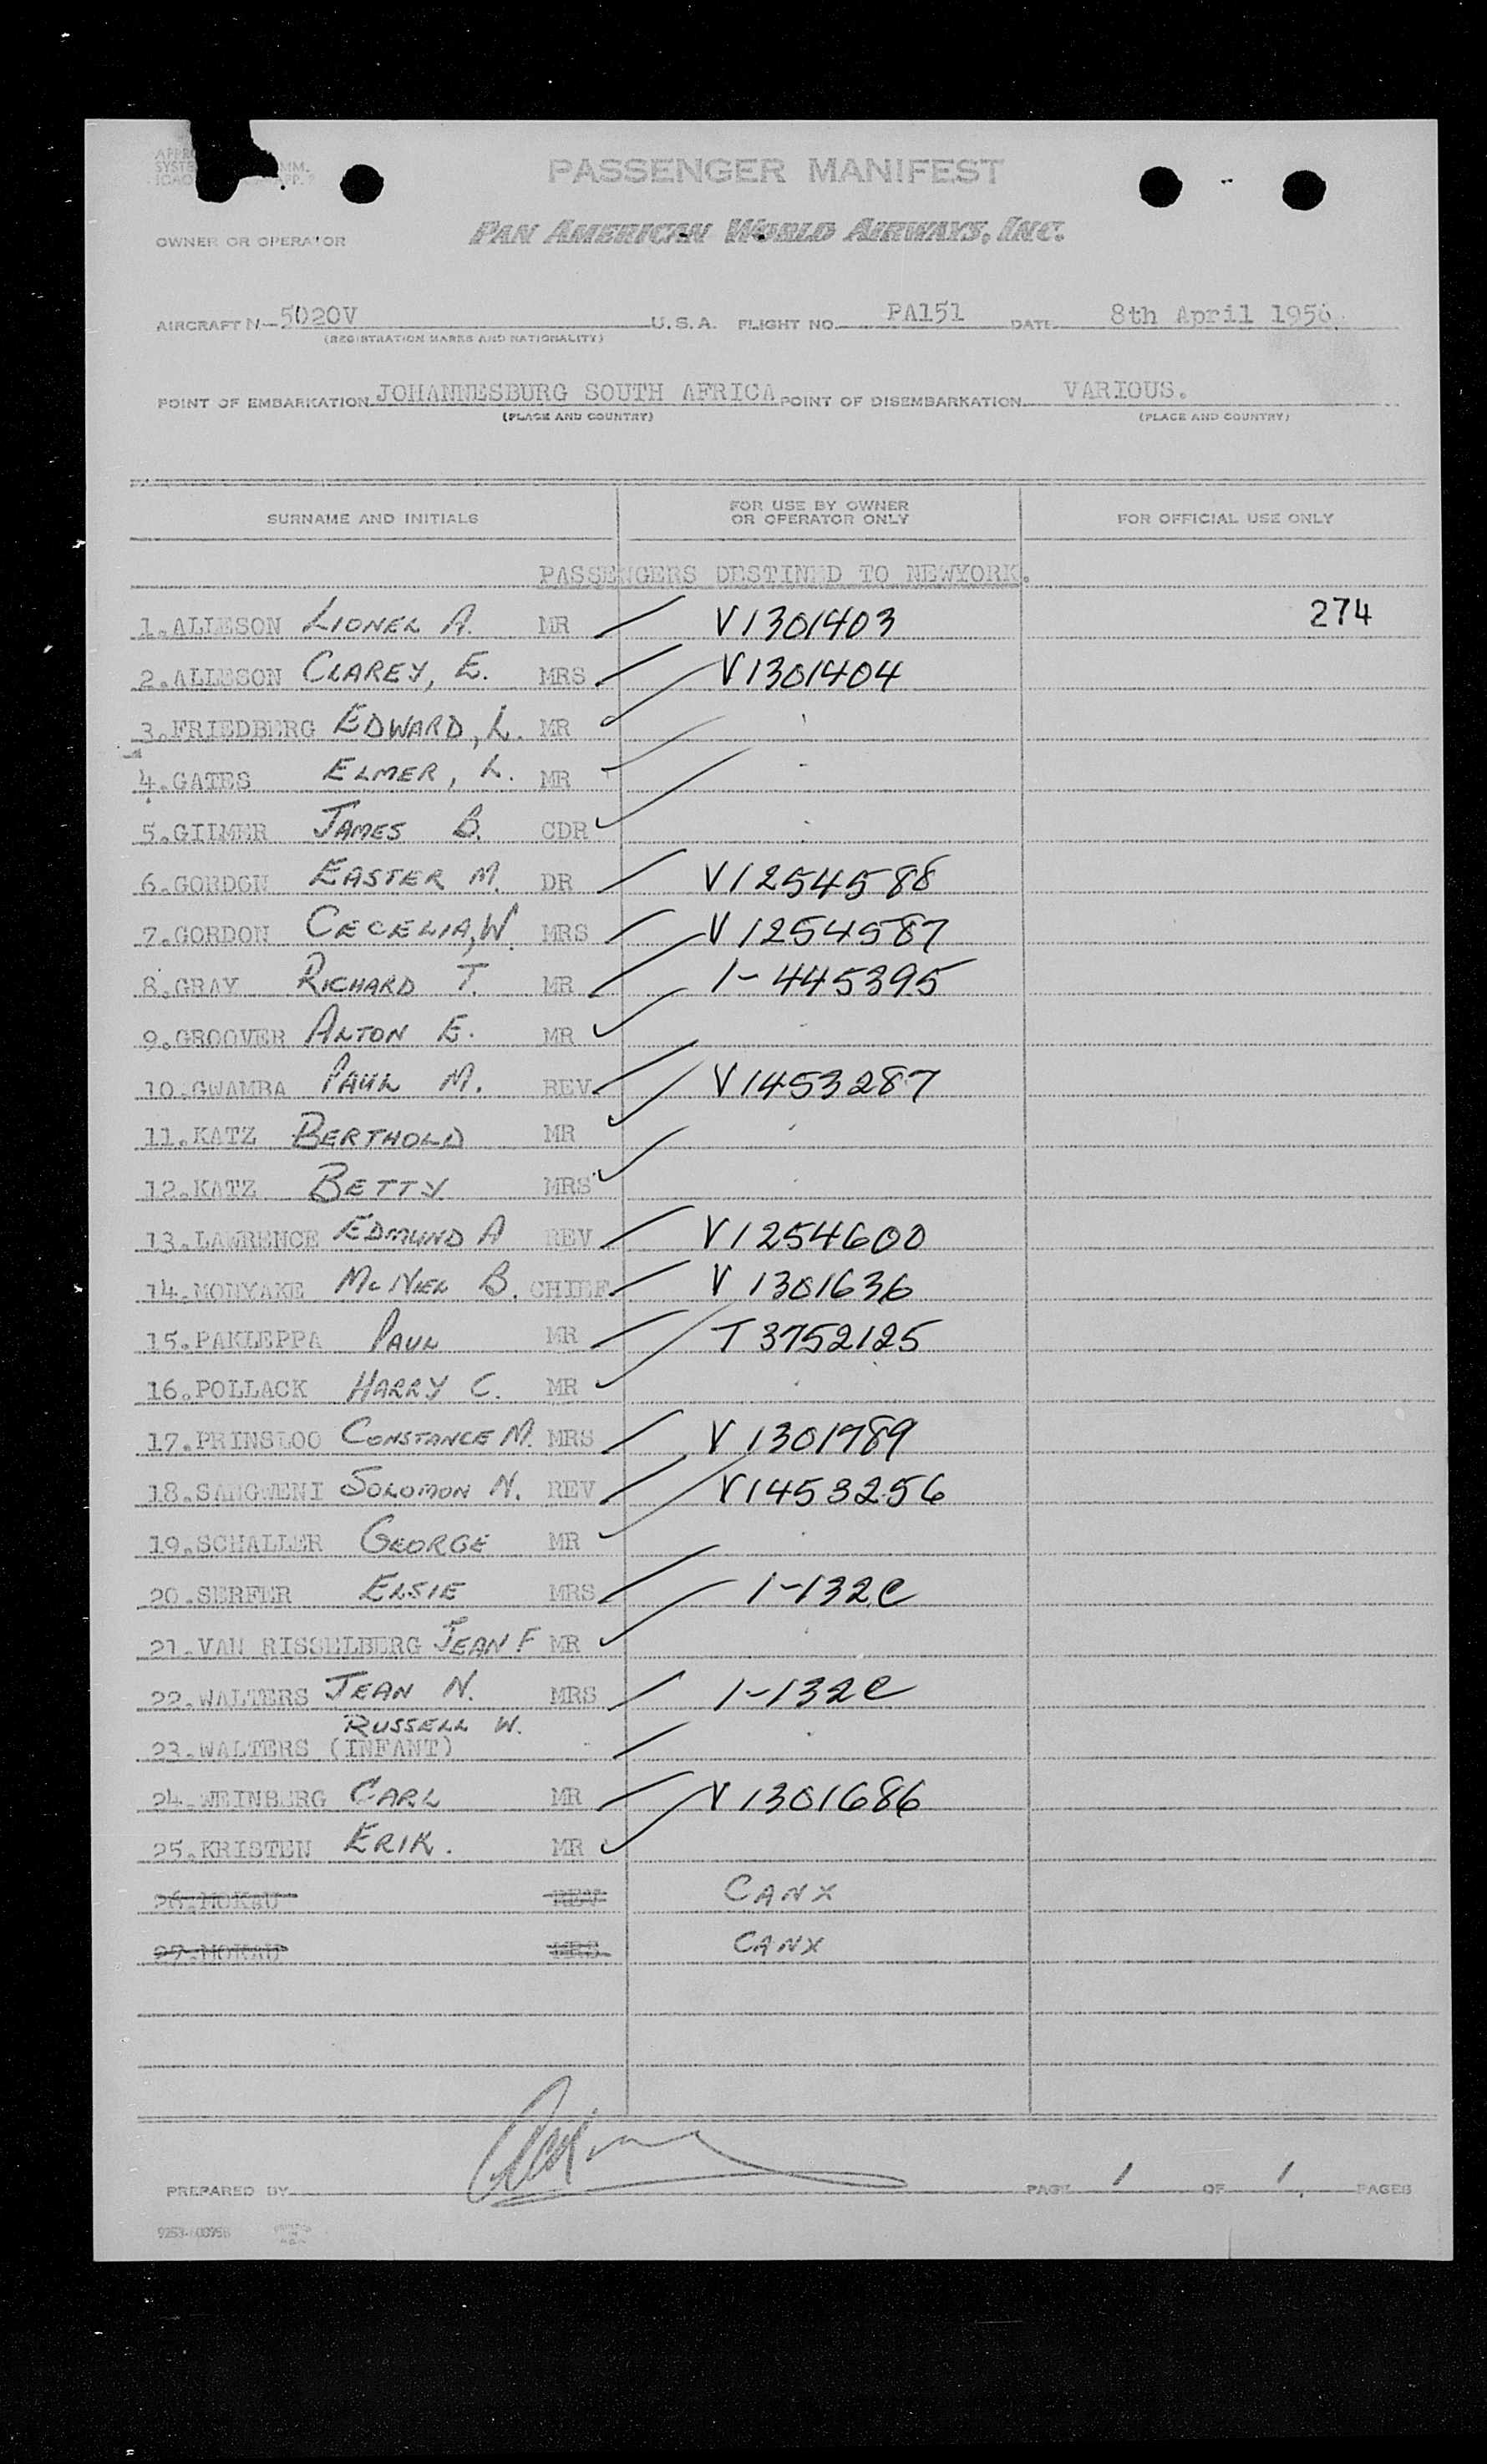 PASSENGER MANIFEST
OWNER OR OPERATOR PAN AMERICAN WORLD AIRWAYS, INC.
AIRCRAFT N-5020V U.S.A. FLIGHT NO. PA151 DATE 8th April 1956.
(REGISTRATION MARKS AND NATIONALITY)
POINT OF EMBARKATION JOHANNESBURG SOUTH AFRICA POINT OF DISEMBARKATION VARIOUS.
(PLACE AND COUNTRY) (PLACE AND COUNTRY)
SURNAME AND INITIALS FOR USE BY OWNER OR OPERATOR ONLY FOR OFFICIAL USE ONLY
PASSENGERS DESTINED TO NEWYORK.
1.ALIESON LIONEL A. MR V1301403 274
2.ALIESON CLAREY, E. MRS V1301404
3.FRIEDBERG EDWARD, L. MR
4.GATES ELMER, L. MR
5.GILMER JAMES B. CDR
6.GORDON EASTER M. DR V1254588
7.GORDON CECELIA, W. MRS V1254587
8.GRAY RICHARD T. MR 1-445395
9.GROOVER ALTON E. MR
10.GWAMBA PAUL M. REV V1453287
11.KATZ BERTHOLD MR
12.KATZ BETTY MRS
13.LAWRENCE EDMUND A REV V1254600
14.MONYAKE McNIEL B. CHIEF V1301636
15.PAKLEPPA PAUL MR T3752125
16.POLLACK HARRY C. MR
17.PRINSLOO CONSTANCE M. MRS V1301789
18.SANGWENI SOLOMON N. REV V1453256
19.SCHALLER GEORGE MR
20.SERFER ELSIE MRS 1-132C
21.VAN RISSELBERG JEAN F MR
22.WALTERS JEAN N. MRS 1-132C
RUSSELL W.
23.WALTERS (INFANT)
24.WEINBERG CARL MR V1301686
25.KRISTEN ERIK. MR
26.MOKAU REV CANX
27.MOKAU MRS CANX
PREPARED BY PAGE 1 OF 1. PAGES